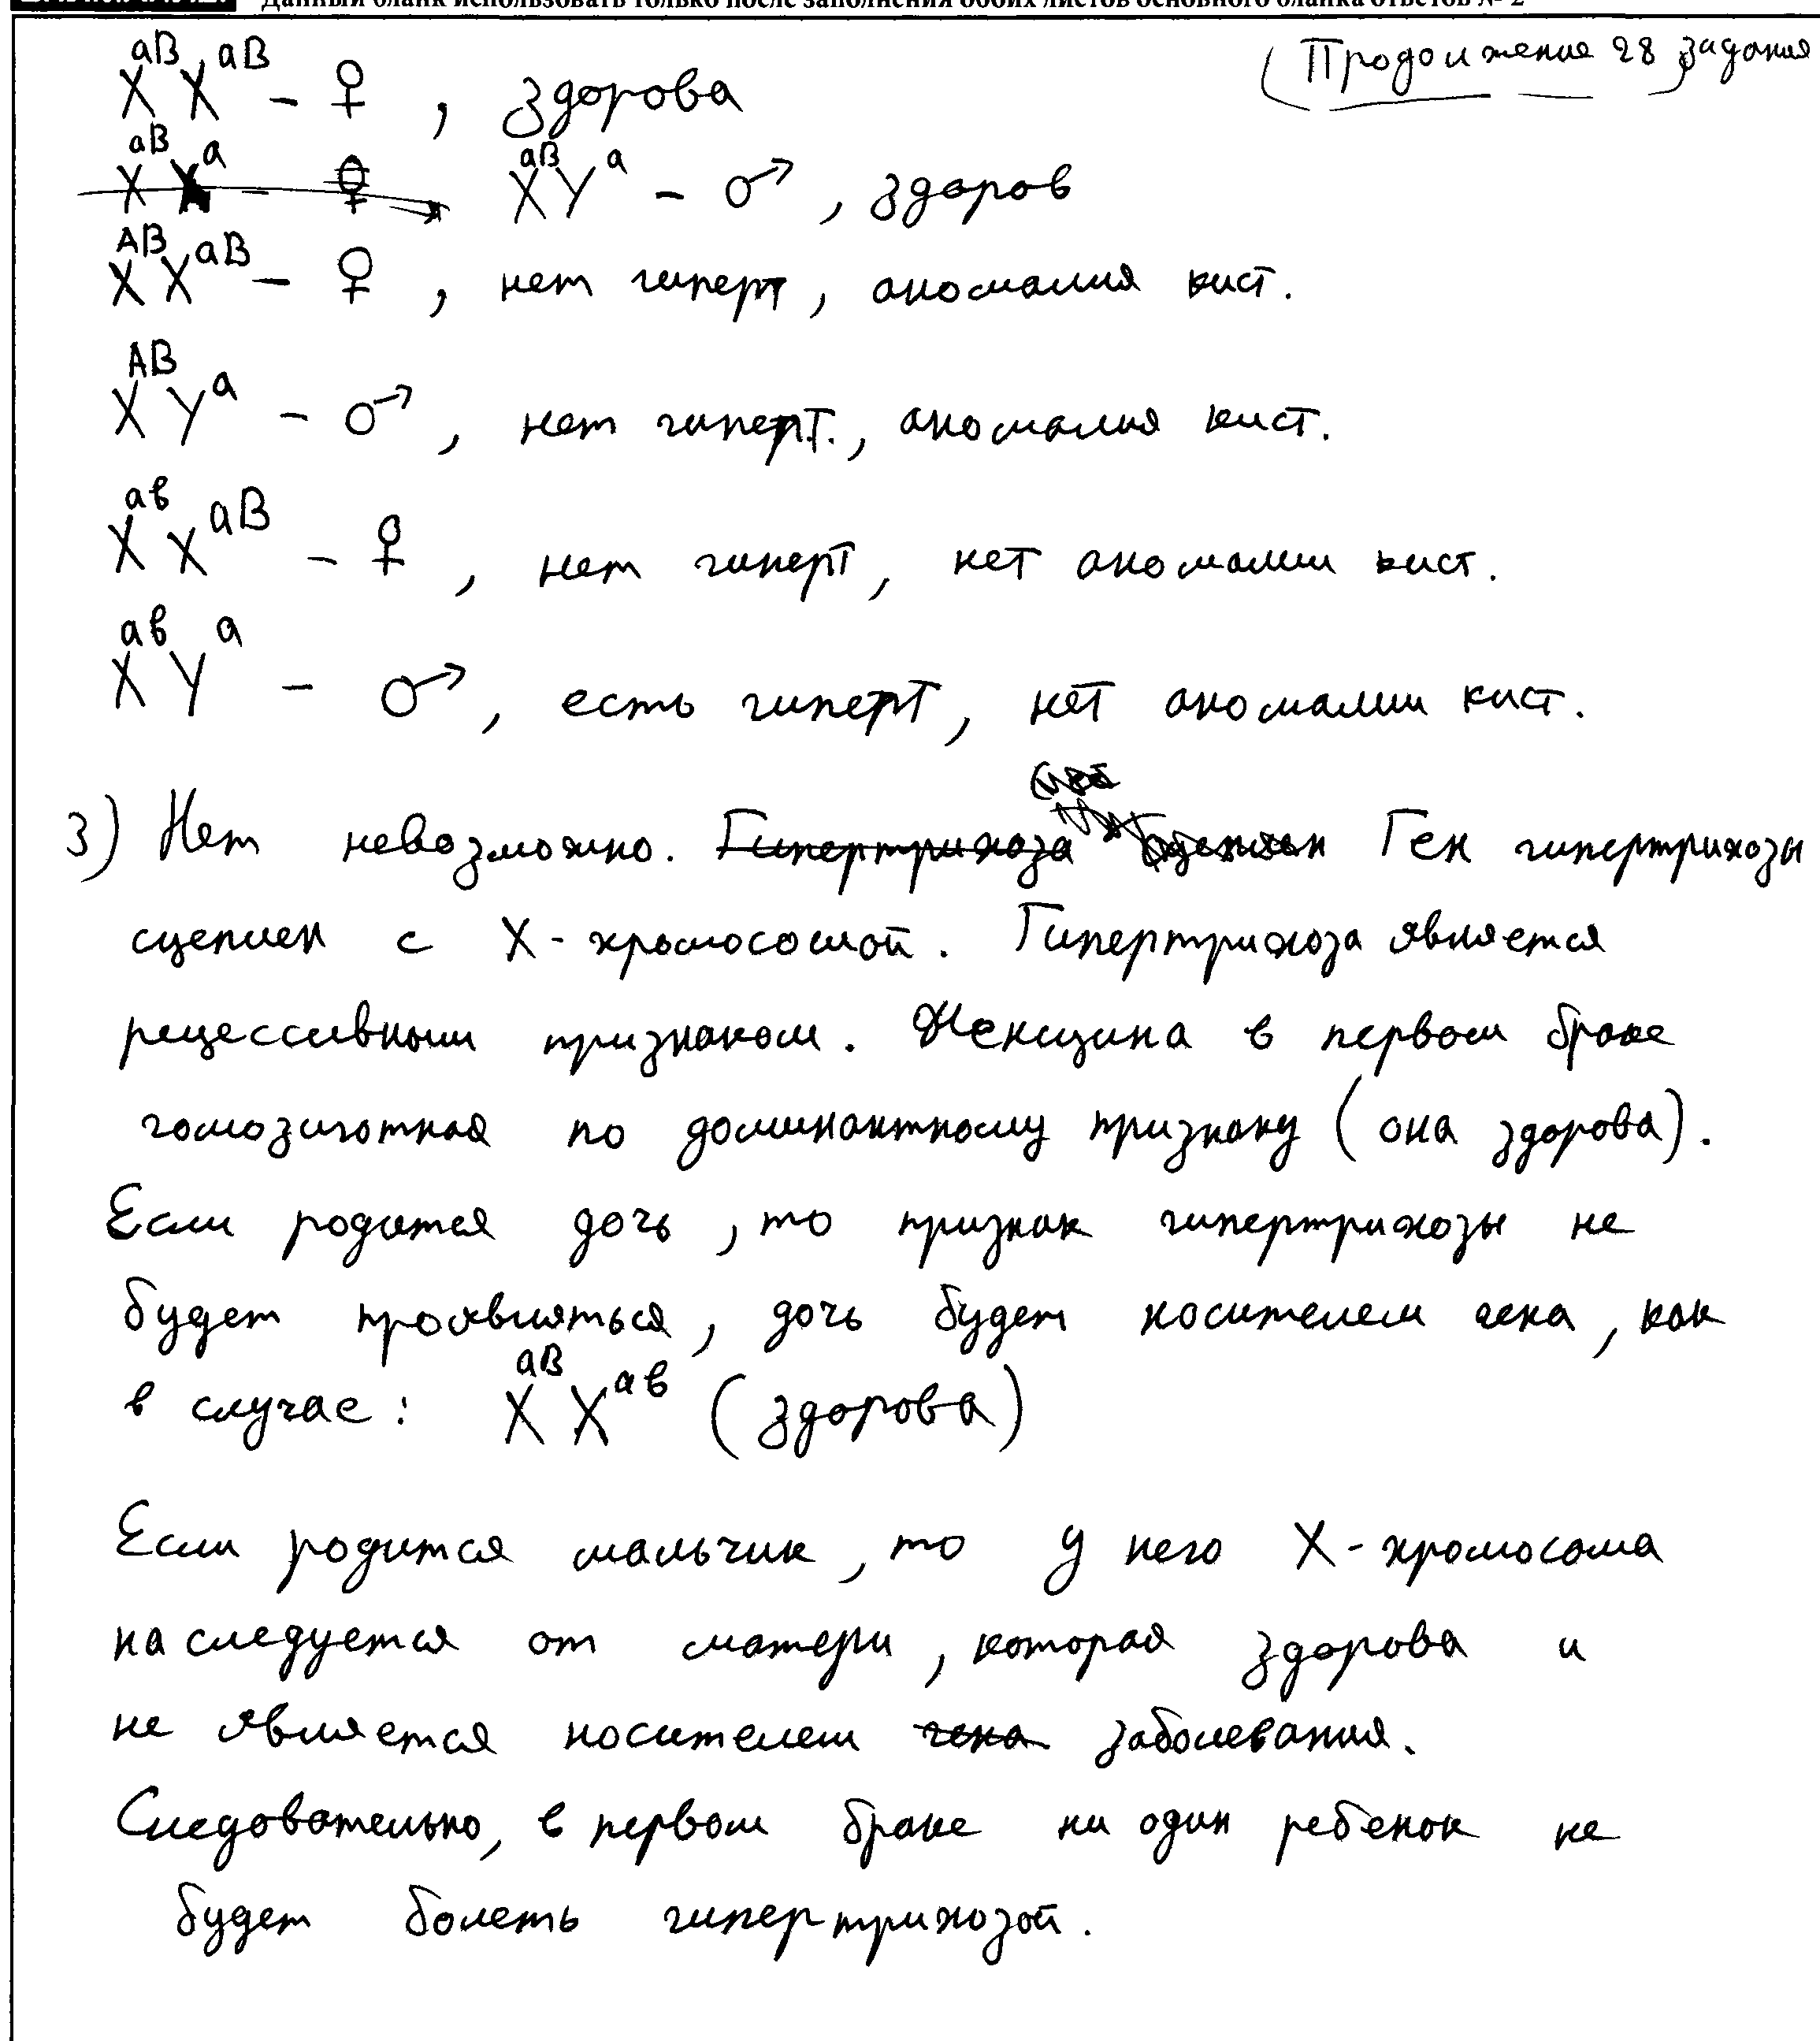 Данный бланк использовать только после заполнения обоих листов основного бланка ответов № 2
(Продолжение 28 задания)
X^aB X^aB - ♀, здорова
X^aB X^a - ♀, X^aB Y^a - ♂, здоров
X^AB X^aB - ♀, нет гиперт, аномалия кист.
X^AB Y^a - ♂, нет гиперт., аномалия кист.
X^ав X^aB - ♀, нет гиперт, нет аномалии кист.
X^ав Y^a - ♂, есть гиперт, нет аномалии кист.
3) Нет невозможно. Гипертрихоза Ген гипертрихозы
сцеплен с X-хромосомой. Гипертрихоза является
рецессивным признаком. Женщина в первом браке
гомозиготная по доминантному признаку (она здорова).
Если родится дочь, то признак гипертрихозы не
будет проявляться, дочь будет носителем гена, как
в случае: X^aB X^ав (здорова)
Если родится мальчик, то у него X-хромосома
наследуется от матери, которая здорова и
не является носителем гена заболевания.
Следовательно, в первом браке ни один ребенок не
будет болеть гипертрихозой.